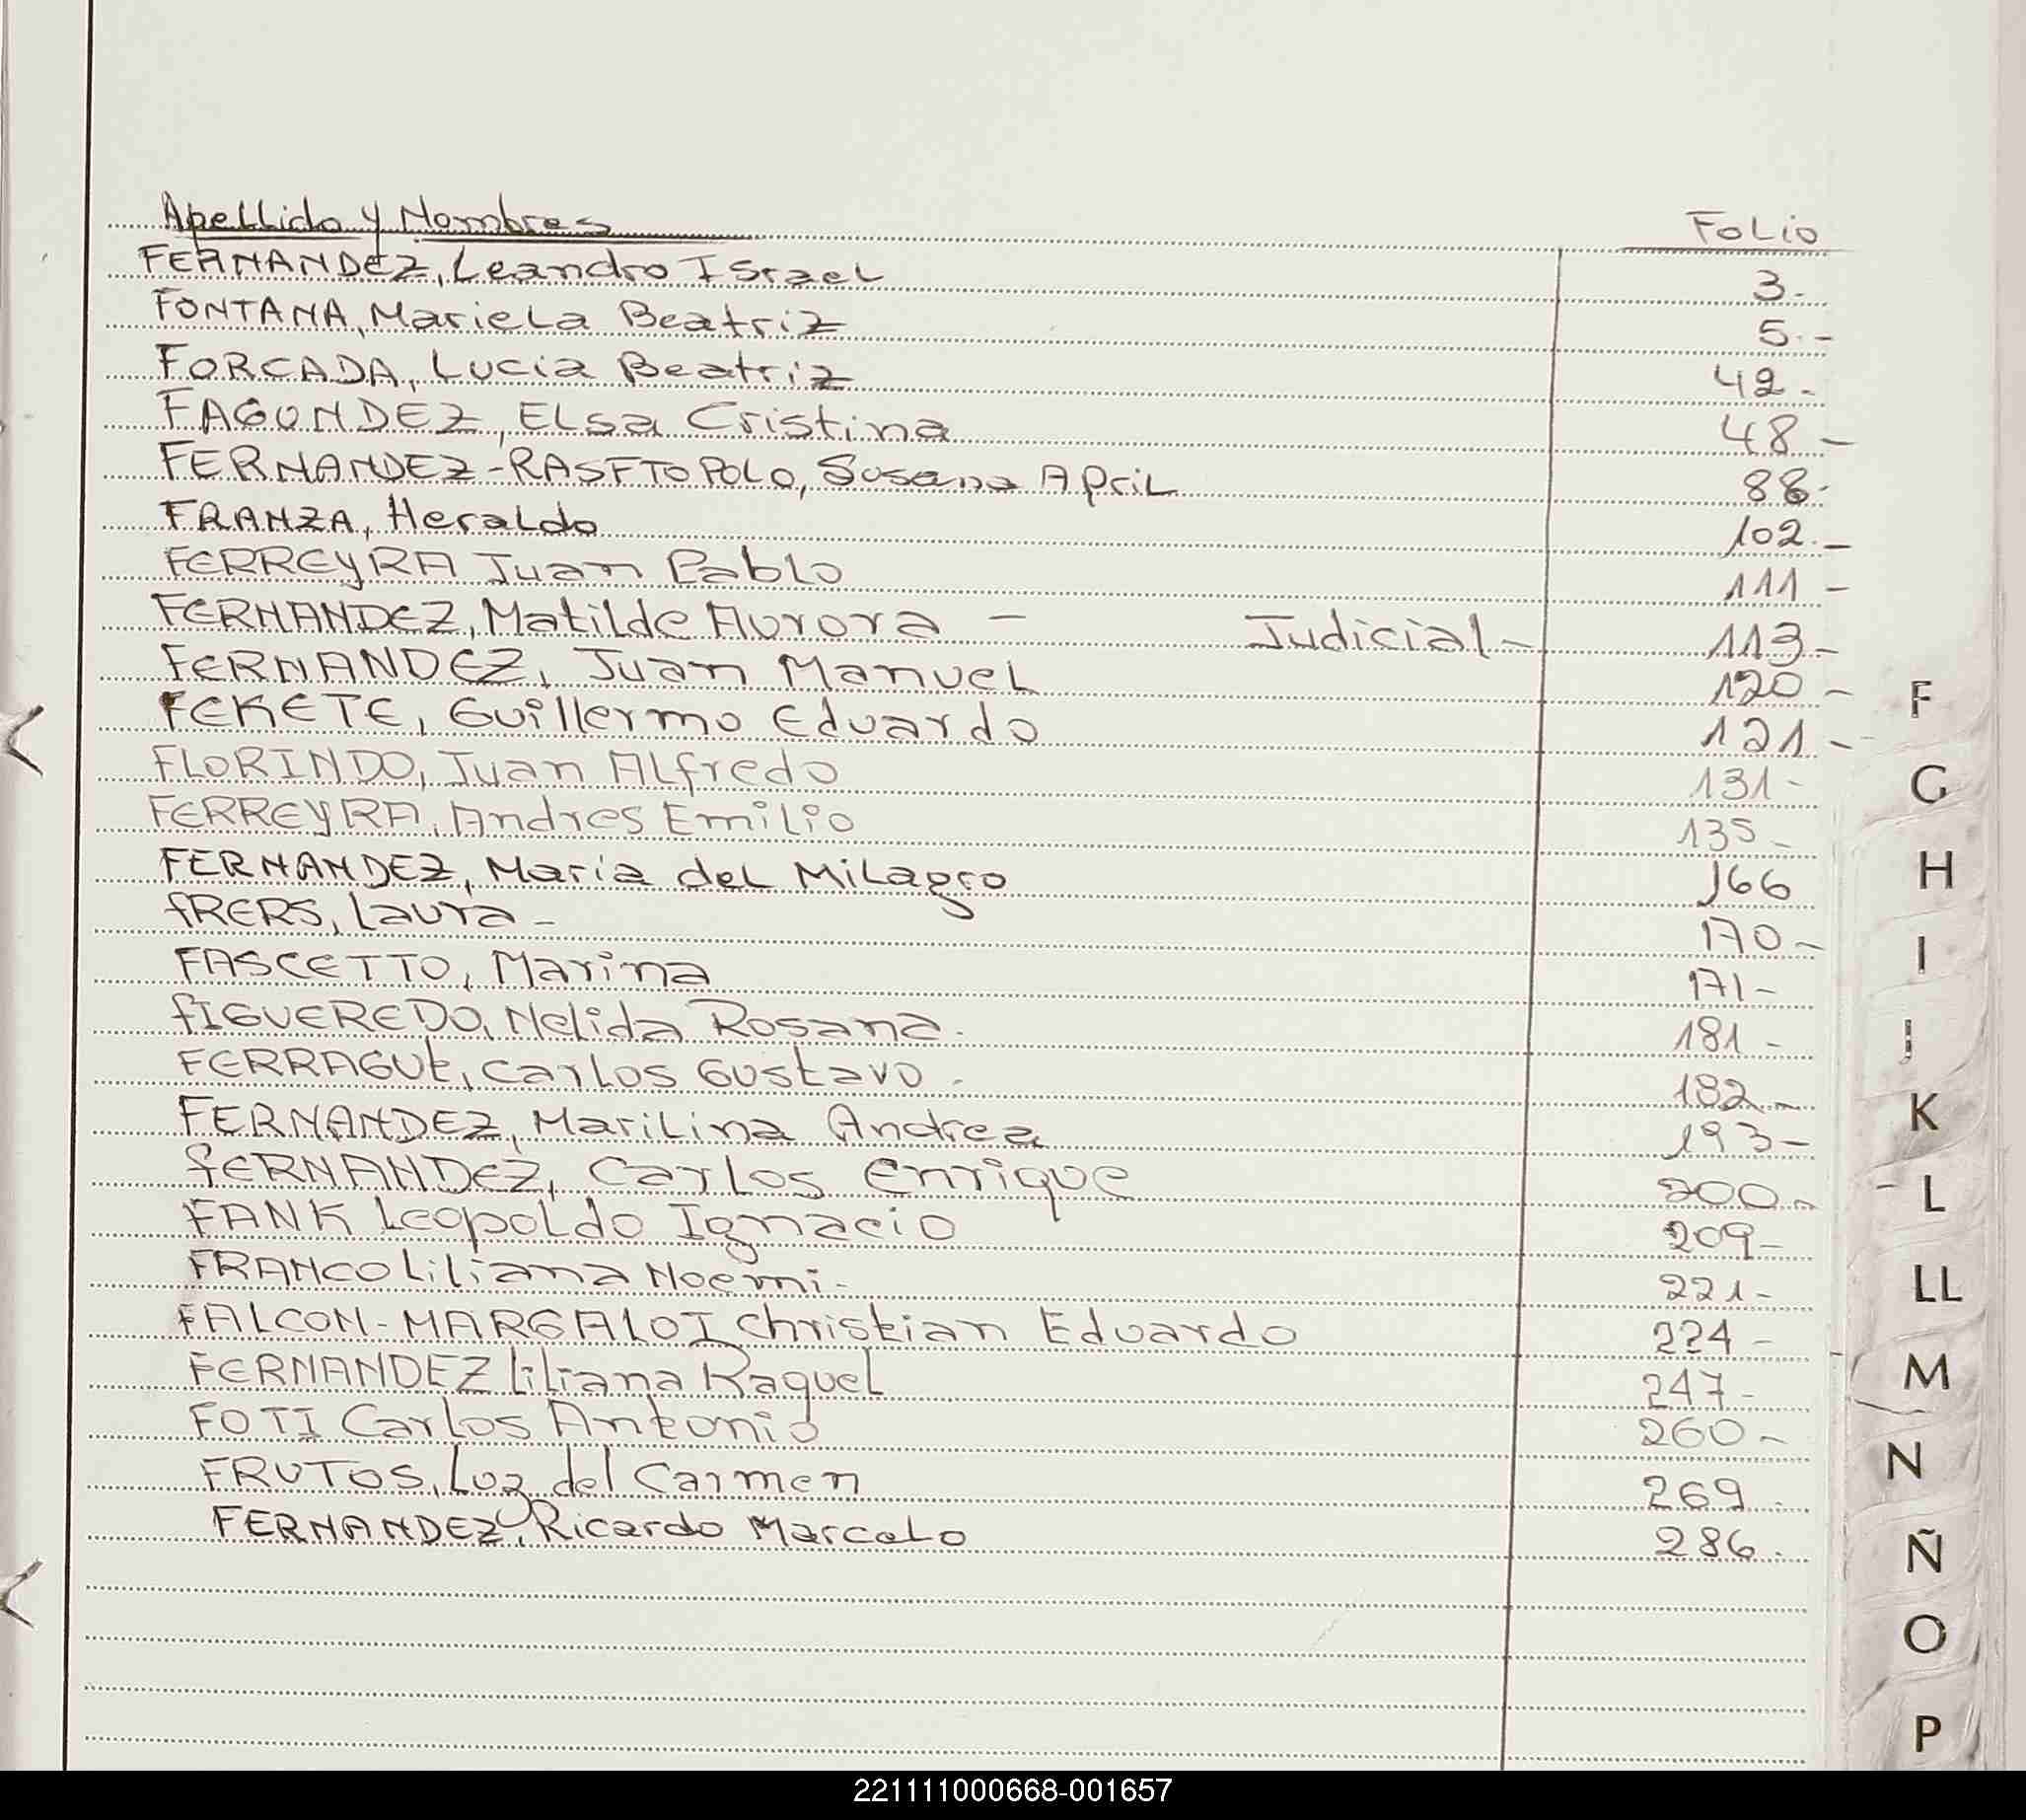 Apellido y Nombres Folio
FERNANDEZ, Leandro Israel 3.-
FONTANA, Mariela Beatriz 5.-
FORCADA, Lucia Beatriz 42-
FAGUNDEZ, Elsa Cristina 48-
FERNANDEZ-RASFTOPOLO, Susana April 88-
FRANZA, Heraldo 102.-
FERREYRA Juan Pablo 111-
FERNANDEZ, Matilde Aurora - Judicial- 113-
FERNANDEZ, Juan Manuel 120-
FEKETE, Guillermo Eduardo 121-
FLORINDO, Juan Alfredo 131-
FERREYRA, Andres Emilio 135-
FERNANDEZ, María del Milagro 166
FRERS, Laura- 170-
FASCETTO, Marina 171-
FIGUEREDO, Nelida Rosana. 181-
FERRAGUt, Carlos Gustavo. 182.-
FERNANDEZ, Marilina Andrea 193-
FERNANDEZ, Carlos Enrique 200-
FANK Leopoldo Ignacio 209-
FRANCO Liliana Noemi- 221-
FALCON-MARGALOT Christian Eduardo 224-
FERNANDEZ Liliana Raquel 247-
FOTI Carlos Antonio 260-
FRUTOS, Luz del Carmen 269.
FERNANDEZ, Ricardo Marcelo 286.
F
G
H
I
J
K
L
LL
M
N
Ñ
O
P
221111000668-001657